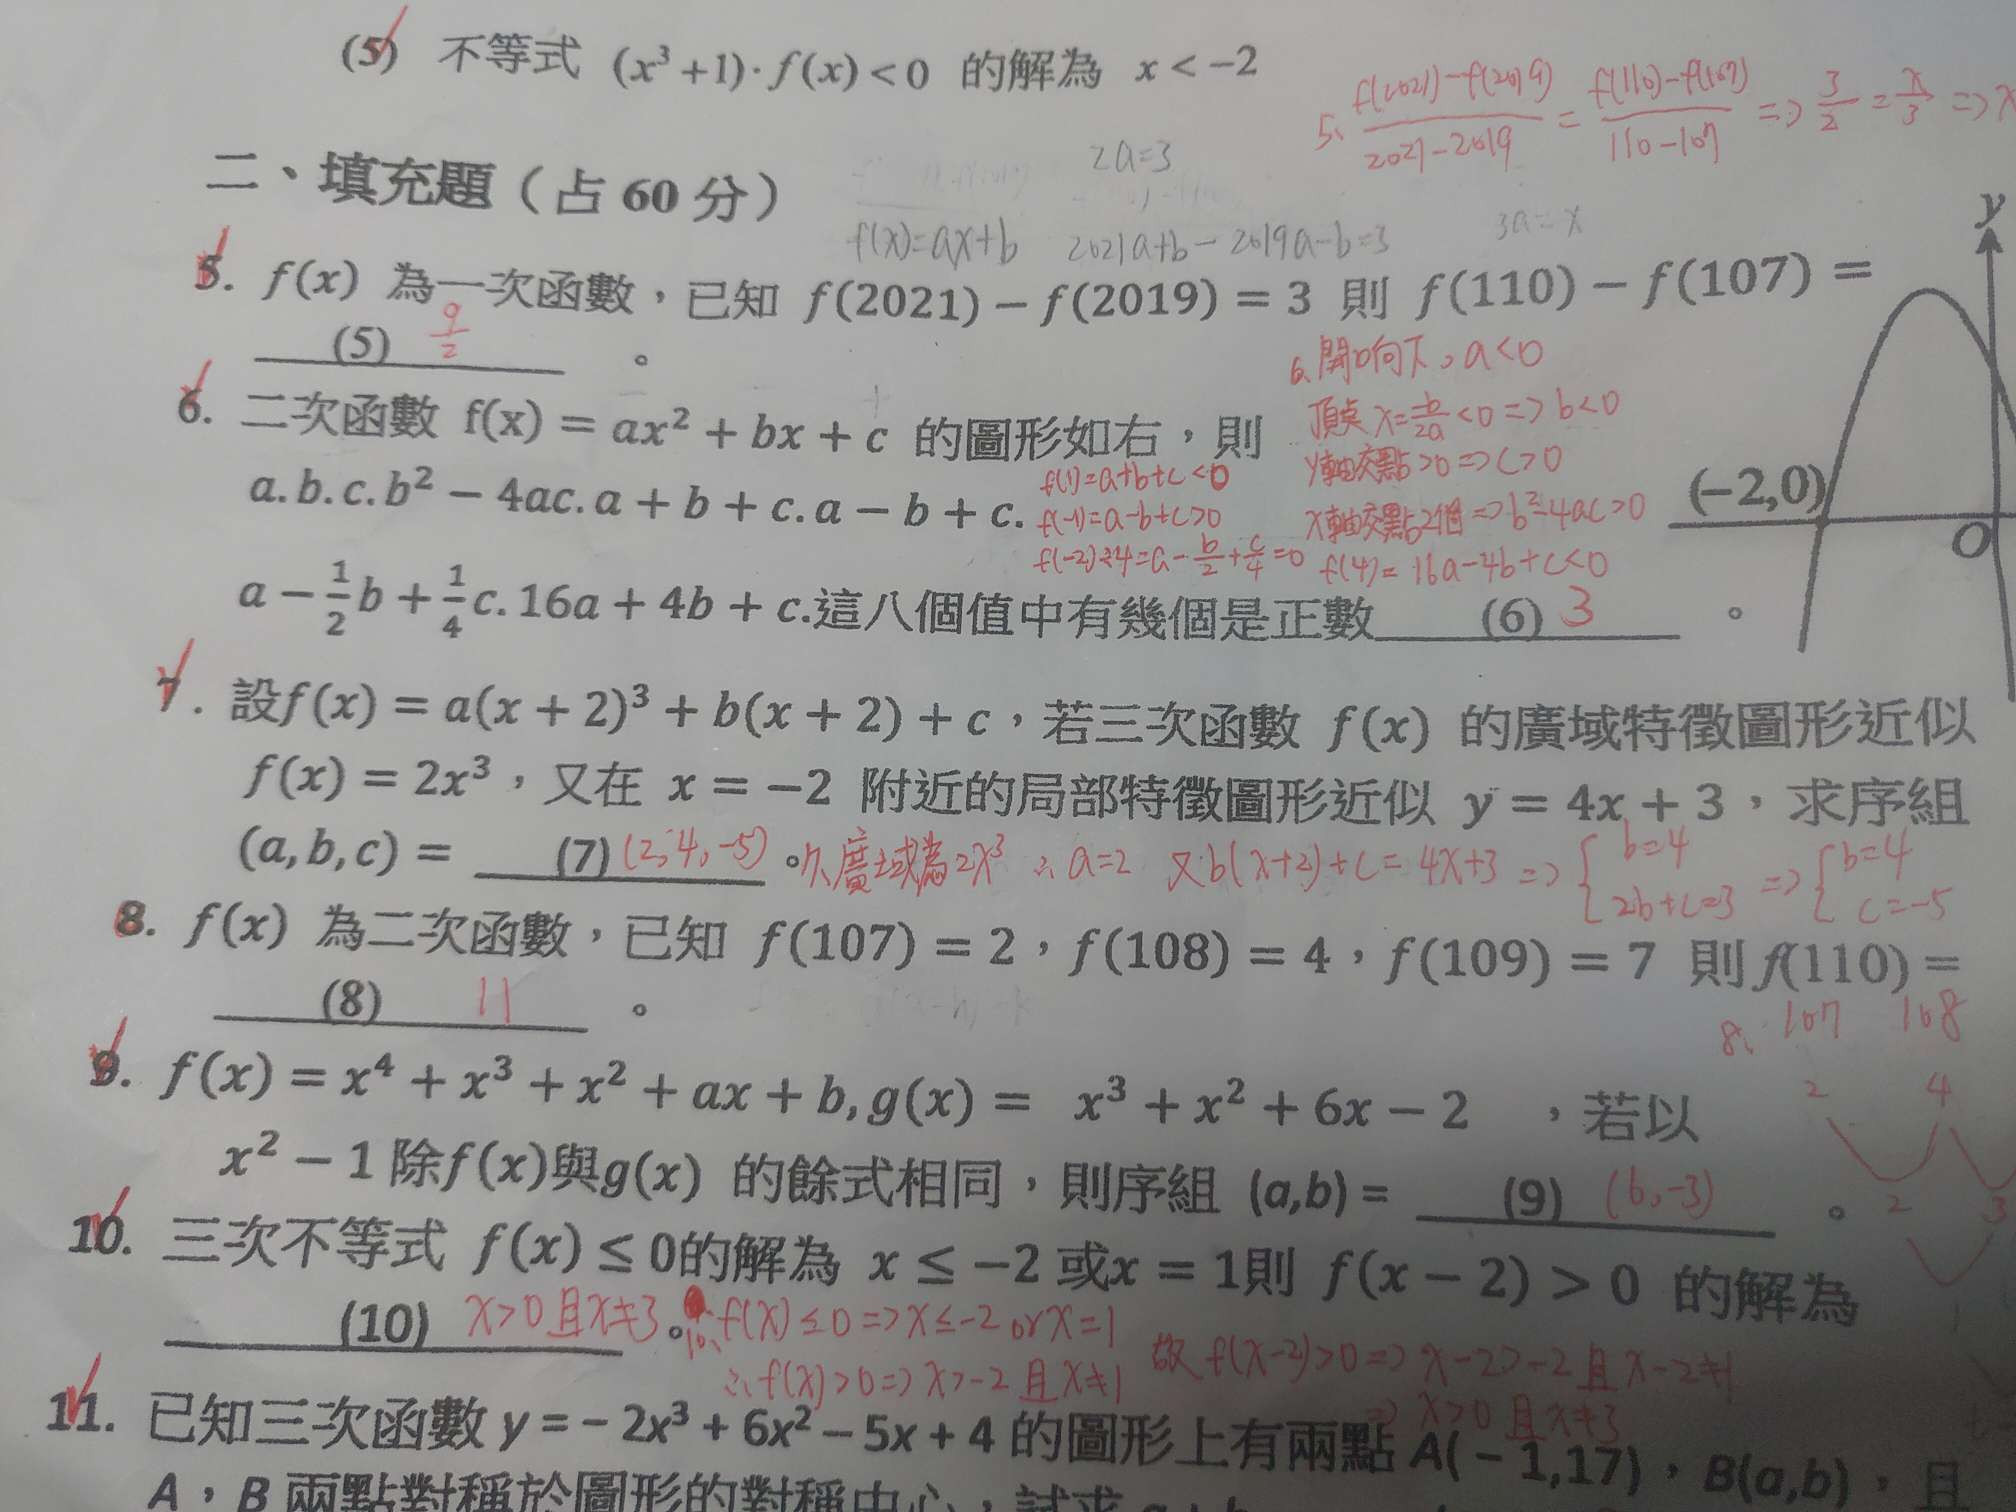 (5) 不等式 (x³+1)·f(x)<0 的解為 x<−2
5、 f(2021)−f(2019) / 2021−2019 = f(110)−f(107) / 110−107 => 3/2 = x/3 => x
二、填充題（占 60 分）
2a=3
f(x)=ax+b 2021a+b−2019a−b=3 3a=x
y
5. f(x) 為一次函數，已知 f(2021)−f(2019)=3 則 f(110)−f(107)=
(5) 9/2 。
6、開口向下，a<0
頂點 x=−b/2a<0=>b<0
y軸交點>0=>c>0
x軸交點2個=>b²−4ac>0
6. 二次函數 f(x)=ax²+bx+c 的圖形如右，則
a.b.c.b²−4ac.a+b+c.a−b+c.
f(1)=a+b+c<0
f(−1)=a−b+c>0
f(−2)÷4=a−b/2+c/4=0 f(4)=16a−4b+c<0
(−2,0)
O
a−1/2b+1/4c.16a+4b+c.這八個值中有幾個是正數 (6) 3 。
7. 設f(x)=a(x+2)³+b(x+2)+c，若三次函數 f(x) 的廣域特徵圖形近似
f(x)=2x³，又在 x=−2 附近的局部特徵圖形近似 y=4x+3，求序組
(a,b,c)= (7) (2,4,−5) 。
7、廣域為2x³ ∴a=2 又b(x+2)+c=4x+3 => {b=4 2b+c=3 => {b=4 c=−5
8. f(x) 為二次函數，已知 f(107)=2，f(108)=4，f(109)=7 則f(110)=
(8) 11 。
8、 107 108
2 4
2 3
9. f(x)=x⁴+x³+x²+ax+b,g(x)= x³+x²+6x−2 ，若以
x²−1除f(x)與g(x) 的餘式相同，則序組 (a,b)= (9) (6,−3) 。
10. 三次不等式 f(x)≤0的解為 x≤−2 或x=1則 f(x−2)>0 的解為
(10) x>0 且x≠3 。
10、f(x)≤0=>x≤−2 or x=1
∴f(x)>0=>x>−2 且x≠1
故 f(x−2)>0=>x−2>−2 且 x−2≠1
=> x>0 且 x≠3
11. 已知三次函數 y=−2x³+6x²−5x+4 的圖形上有兩點 A(−1,17)，B(a,b)，且
A，B 兩點對稱於圖形的對稱中心，試求